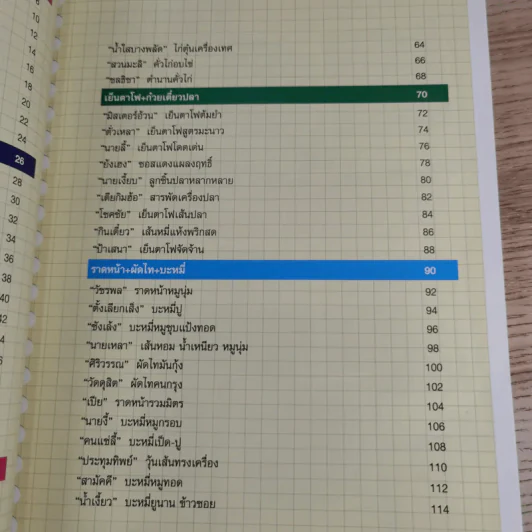 8
10
12
14
16
18
20
22
24
26
28
30
32
34
36
38
40
42
44
46
"น้ำใสบางพลัด" ไก่ตุ๋นเครื่องเทศ 64
"สวนมะลิ" คั่วไก่อบไข่ 66
"ชลธิชา" ตำนานคั่วไก่ 68
เย็นตาโฟ+ก๋วยเตี๋ยวปลา 70
"มิสเตอร์อ้วน" เย็นตาโฟต้มยำ 72
"ตั๋วเหลา" เย็นตาโฟสูตรมะนาว 74
"นายลี้" เย็นตาโฟโดดเด่น 76
"ยังเฮง" ซอสแดงแผลงฤทธิ์ 78
"นายเงี๊ยบ" ลูกชิ้นปลาหลากหลาย 80
"เตียกิมฮ้อ" สารพัดเครื่องปลา 82
"โชคชัย" เย็นตาโฟเส้นปลา 84
"กินเตี๋ยว" เส้นหมี่แห้งพริกสด 86
"ป้าเสนา" เย็นตาโฟจัดจ้าน 88
ราดหน้า+ผัดไท+บะหมี่ 90
"วัชรพล" ราดหน้าหมูนุ่ม 92
"ตั้งเลียกเส็ง" บะหมี่ปู 94
"ซังเล้ง" บะหมี่หมูชุบแป้งทอด 96
"นายเหลา" เส้นหอม น้ำเหนียว หมูนุ่ม 98
"ศิริวรรณ" ผัดไทมันกุ้ง 100
"วัดดุสิต" ผัดไทคนกรุง 102
"เปีย" ราดหน้ารวมมิตร 104
"นายงี้" บะหมี่หมูกรอบ 106
"คนแซ่ลี้" บะหมี่เป็ด-ปู 108
"ประทุมทิพย์" วุ้นเส้นทรงเครื่อง 110
"สามัคคี" บะหมี่หมูทอด 112
"น้ำเงี้ยว" บะหมี่ยูนาน ข้าวซอย 114